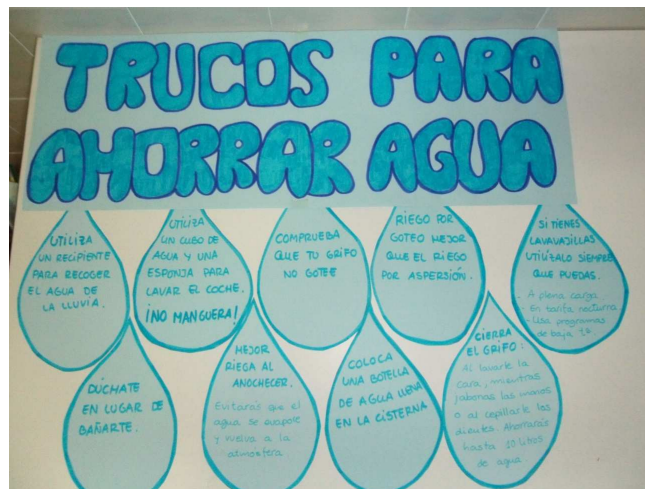 TRUCOS PARA
AHORRAR AGUA
UTILIZA
UN RECIPIENTE
PARA RECOGER
EL AGUA DE
LA LLUVIA.
UTILIZA
UN CUBO DE
AGUA Y UNA
ESPONJA PARA
LAVAR EL COCHE.
¡NO MANGUERA!
COMPRUEBA
QUE TU GRIFO
NO GOTEE
RIEGO POR
GOTEO MEJOR
QUE EL RIEGO
POR ASPERSIÓN.
SI TIENES
LAVAVAJILLAS
UTILÍZALO SIEMPRE
QUE PUEDAS.
- A plena carga
- En tarifa nocturna
- Usa programas
de baja Tª.
DÚCHATE
EN LUGAR DE
BAÑARTE.
MEJOR
RIEGA AL
ANOCHECER.
Evitarás que el
agua se evapore
y vuelva a la
atmósfera
COLOCA
UNA BOTELLA
DE AGUA LLENA
EN LA CISTERNA
CIERRA
EL GRIFO:
Al lavarte la
cara, mientras
jabonas las manos
o al cepillarte los
dientes. Ahorrarás
hasta 10 litros
de agua.